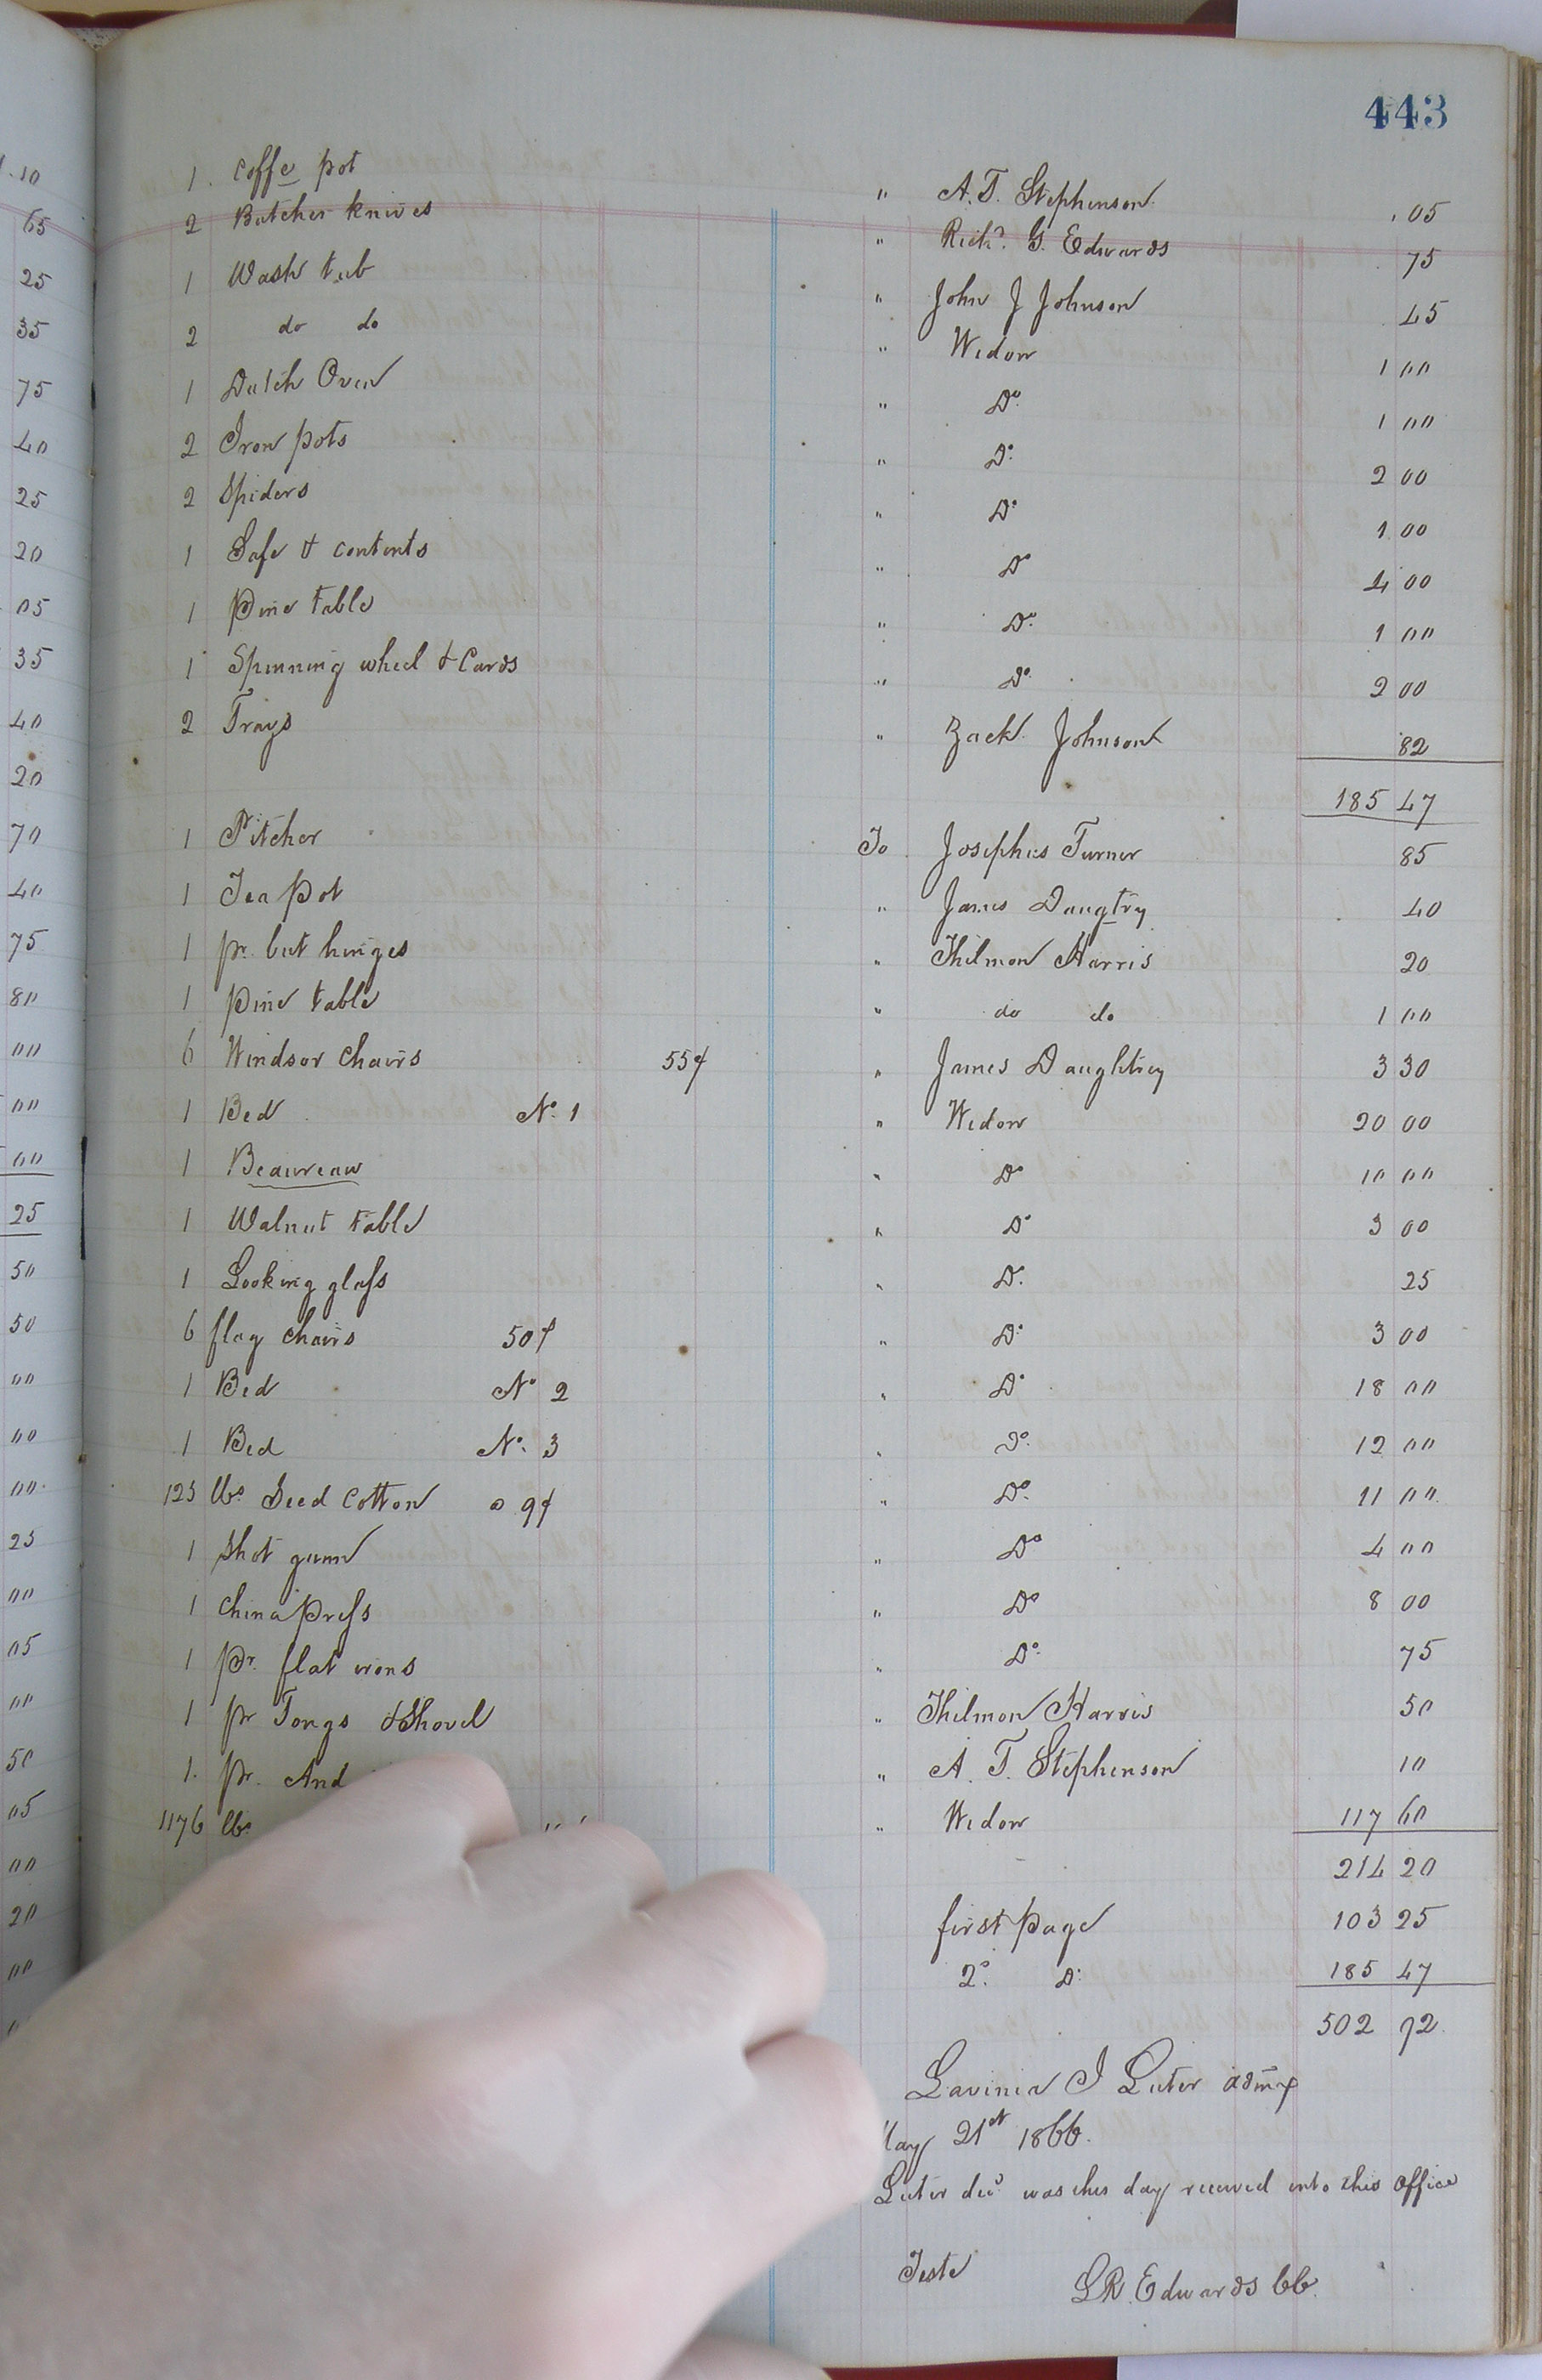 443
1 Coffe pot " A. T. Stephenson .05
2 Butcher knives " Richd. G. Edwards 75
1 Wash tub " John J Johnson 45
2 do do " Widow 1 00
1 Dutch Oven " Do. 1 00
2 Iron pots " Do. 2 00
2 Spiders " Do 1 00
1 Safe & contents " Do 4 00
1 Pine table " Do. 1 00
1 Spinning wheel & Cards " Do. 2 00
2 Trays " Zack Johnson 82
185 47
1 Pitcher To Josephus Turner 85
1 Tea Pot " James Daugtry 40
1 pr. but hinges " Thilmon Harris 20
1 pine table " do do 1 00
6 Windsor Chairs 55¢ " James Daughtrey 3 30
1 Bed No. 1 " Widow 20 00
1 Beaureau " Do 10 00
1 Walnut table " Do 3 00
1 Looking glass " Do. 25
6 flag chairs 50¢ " Do. 3 00
1 Bed No 2 " Do 18 00
1 Bed No. 3 " Do. 12 00
123 lbs Seed Cotton @ 9¢ " Do. 11 00
1 Shot gunn " Do 4 00
1 China press " Do 8 00
1 Pr. flat irons " Do. 75
1 pr Tongs & Shovel " Thilmon Harris 50
1. pr. And " A. T. Stephenson 10
1176 lbs " Widow 117 60
214 20
first page 103 25
2d. Do. 185 47
502 92
Lavinia J Luter admx
May 21st 1866.
Luter decd was this day received into this office
Teste
L R. Edwards CC.
10
65
25
35
75
40
25
20
05
35
40
20
70
40
75
80
00
00
00
25
50
50
00
00
00
25
00
05
00
50
05
00
20
00